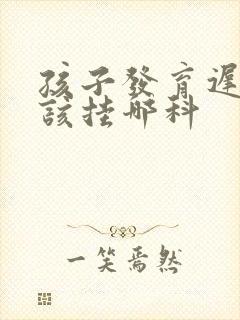 孩子發育遲
該掛哪科
一笑焉然